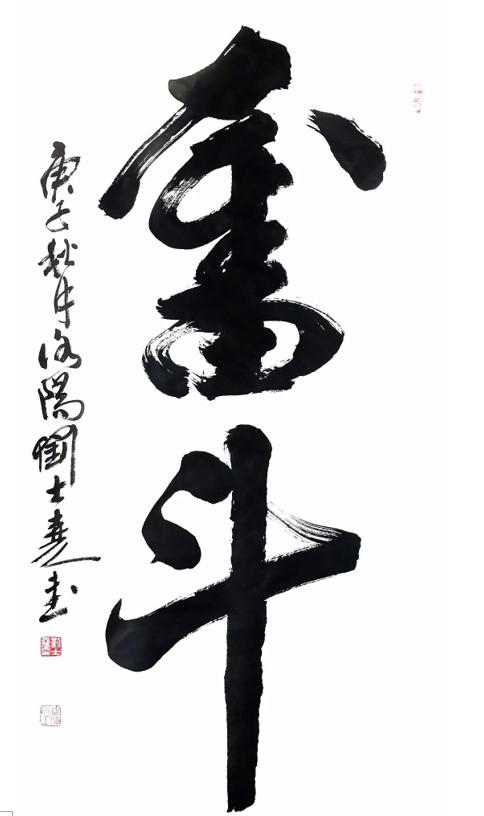 奮斗
庚子秋中洛陽劉士堯書